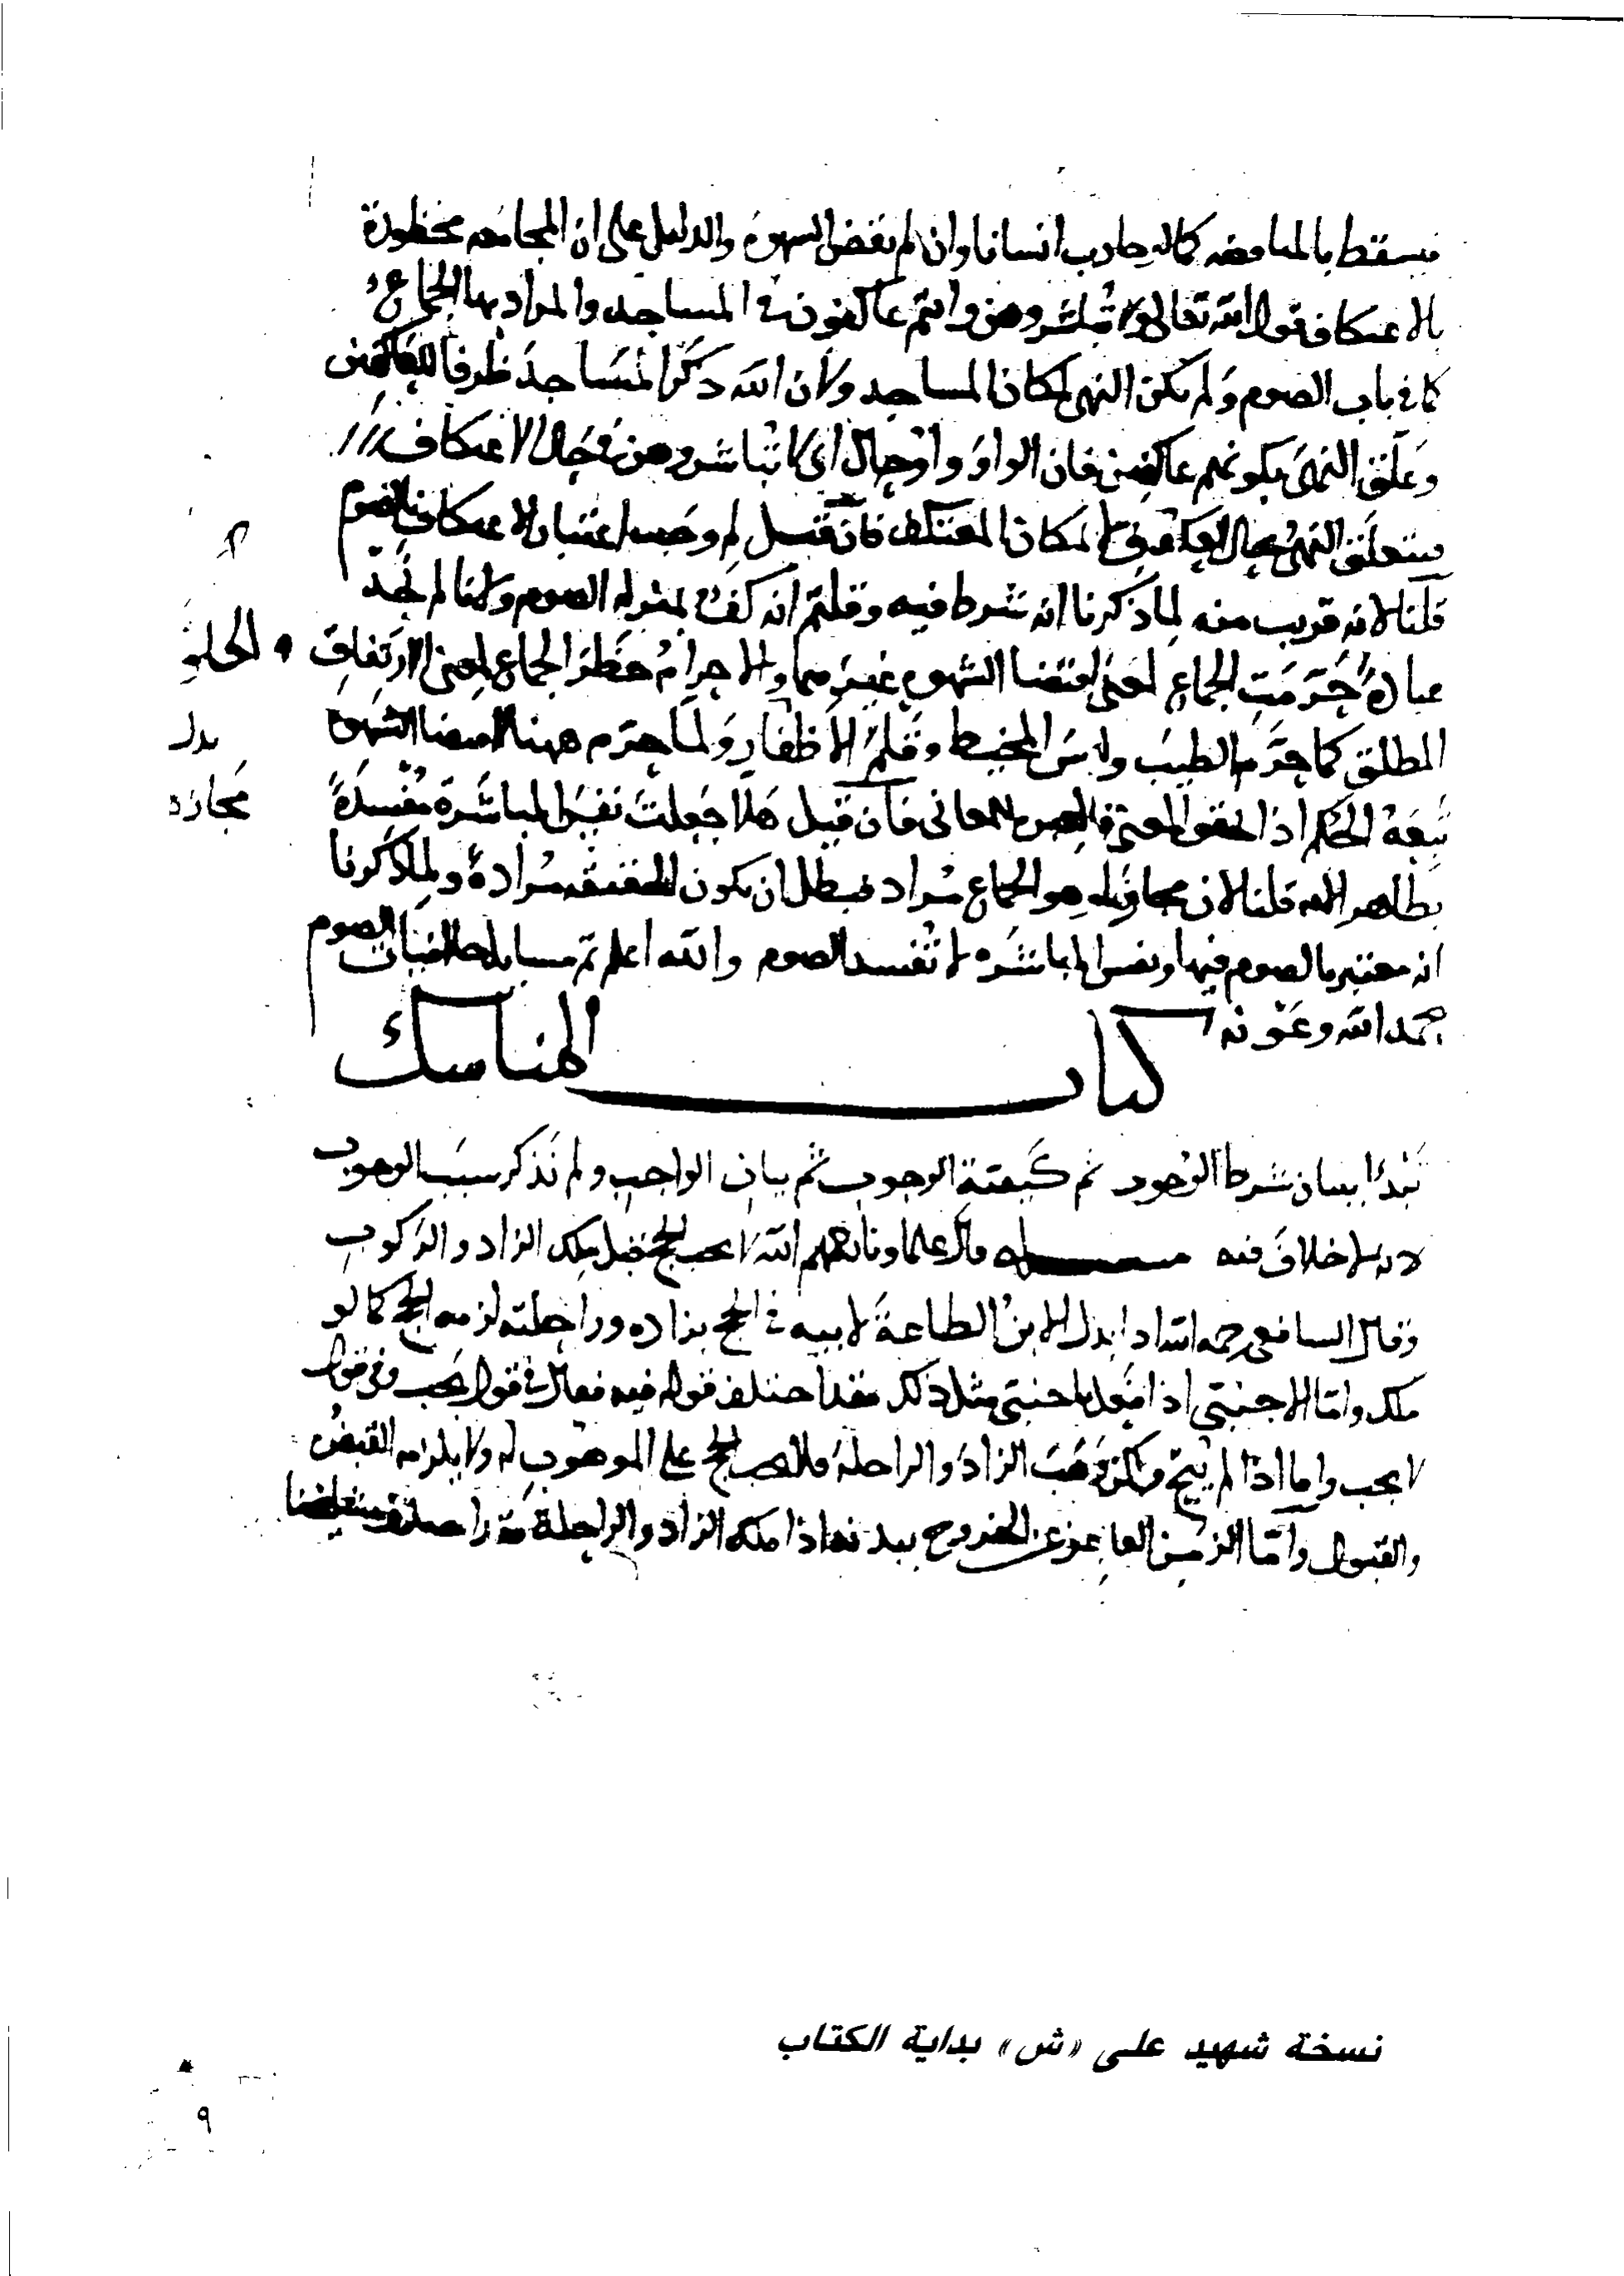 فيسقط بالمناقضه كمال حارب انسانا وان لم يقض الشهوة والدليل على ان المجامعه محظورة
بالاعتكاف قول الله تعالى ولا تباشروهن وانتم عاكفون في المساجد والمراد بها الجماع
كما في باب الصوم ولم يكن النهي لمكان المساجد ولان الله ذكر المساجد ظرفا للعاكفين
وعلق النهي بكونهم عاكفين فان الواو واو حال اي لا تباشروهن في حال الاعتكاف
فيتعلق النهي بحال لا لمكان المعتكف فان قيل لم وجب اعتبار الاعتكاف بالصوم
قلنا لانه قريب منه لما ذكرنا انه شرط فيه وقلتم انه كف بمنزلة الصوم ولانا لم نجد
عبادة حرمت الجماع لمعنى اقتضا الشهوة غيرهما والاحرام حظر الجماع لمعنى الارتفاق
والحلق
المطلق كما حرم الطيب ولبس المخيط وقلم الاظفار ولما حرم ههنا لاقتضا الشهوة
بدل
تبعه الحكم اذ المعنى فان قيل هلا جعلت نفس المباشرة مفسدة
مجازه
بظاهر الآية قلنا لان مجازه وهو الجماع مراد فبطل ان يكون الحقيقة مرادة ولما ذكرنا
انه معتبر بالصوم فيها ونفس المباشرة لا تفسد الصوم والله اعلم تم مسايل الصوم
بحمد الله وعونه
كتاب المناسك
نبدأ ببيان شرط الوجوب ثم كيفية الوجوب ثم بيان الواجب ولم نذكر سبب الوجوب
لانه لا خلاف فيه مسئلة قال علماونا رحمهم الله لا يجب الحج قبل ملك الزاد والركوب
وقال الشافعي رحمه الله اذا بذل الابن الطاعة لابيه في الحج بزاده وراحلته لزمه الحج كما لو
ملك واما الاجنبي اذا فعل باجنبي مثل ذلك فقد اختلف قوله فيه فقال في قول يجب وفي قول
لا يجب واما اذا لم يحج ولكن وهب الزاد والراحلة فلا يجب الحج على الموهوب له ولا يلزمه القبض
والقبول واما الزمن العاجز عن الخروج ببدنه اذا ملك الزاد والراحلة
نسخة شهيد علي «ش» بداية الكتاب
٩